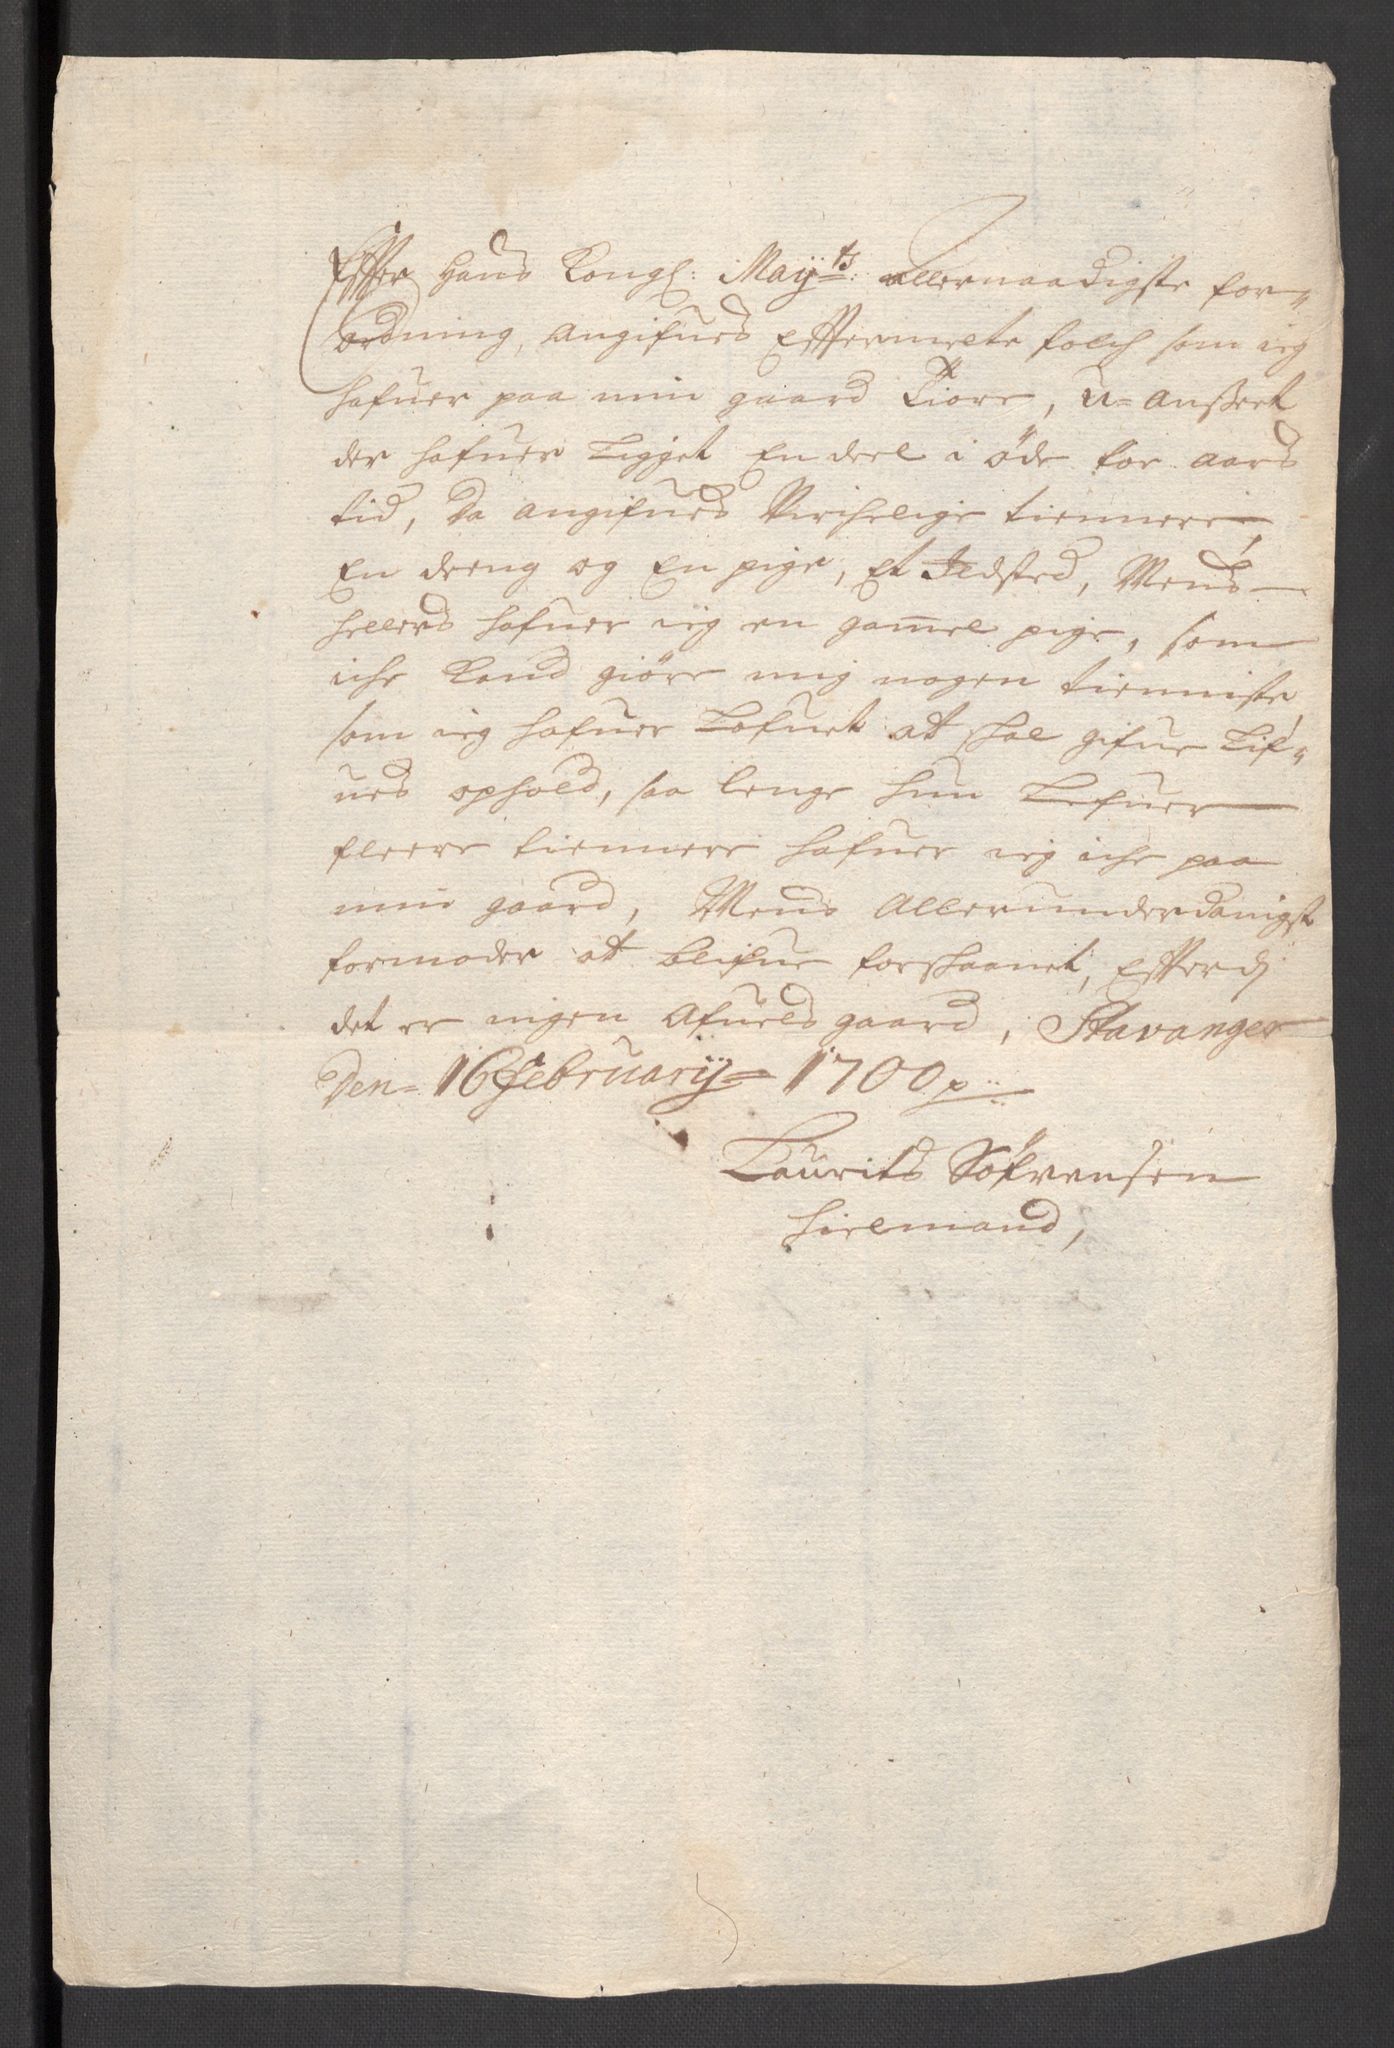 Effter Hans Kongl: Maÿts: allernaadigste for-
ordning, angifues Effterm[el]te folch som ieg
hafuer paa min gaard Tiore, u-anseet
der hafuer Ligget En deel i öde for aars
tid, da angifues Virchelige tiennere
En dreng og En pige, Et Ildsted, Mens
hellers hafuer ieg en gam̄el pige, som
iche kand giöre mig nogen tienniste
som ieg hafuer Lofuet at skal gifue Lif-
ues ophold, saa lenge hun Lefuer
fleere tiennere hafuer ieg iche paa
min gaard, Mens Allerunderdanigst
formoder at blifue forskaanet, Efferdj
det er ingen Afuels gaard, Stavanger
Den 16 Februarÿ 1700 p:
Laurits Söfrensen
Hielmand,